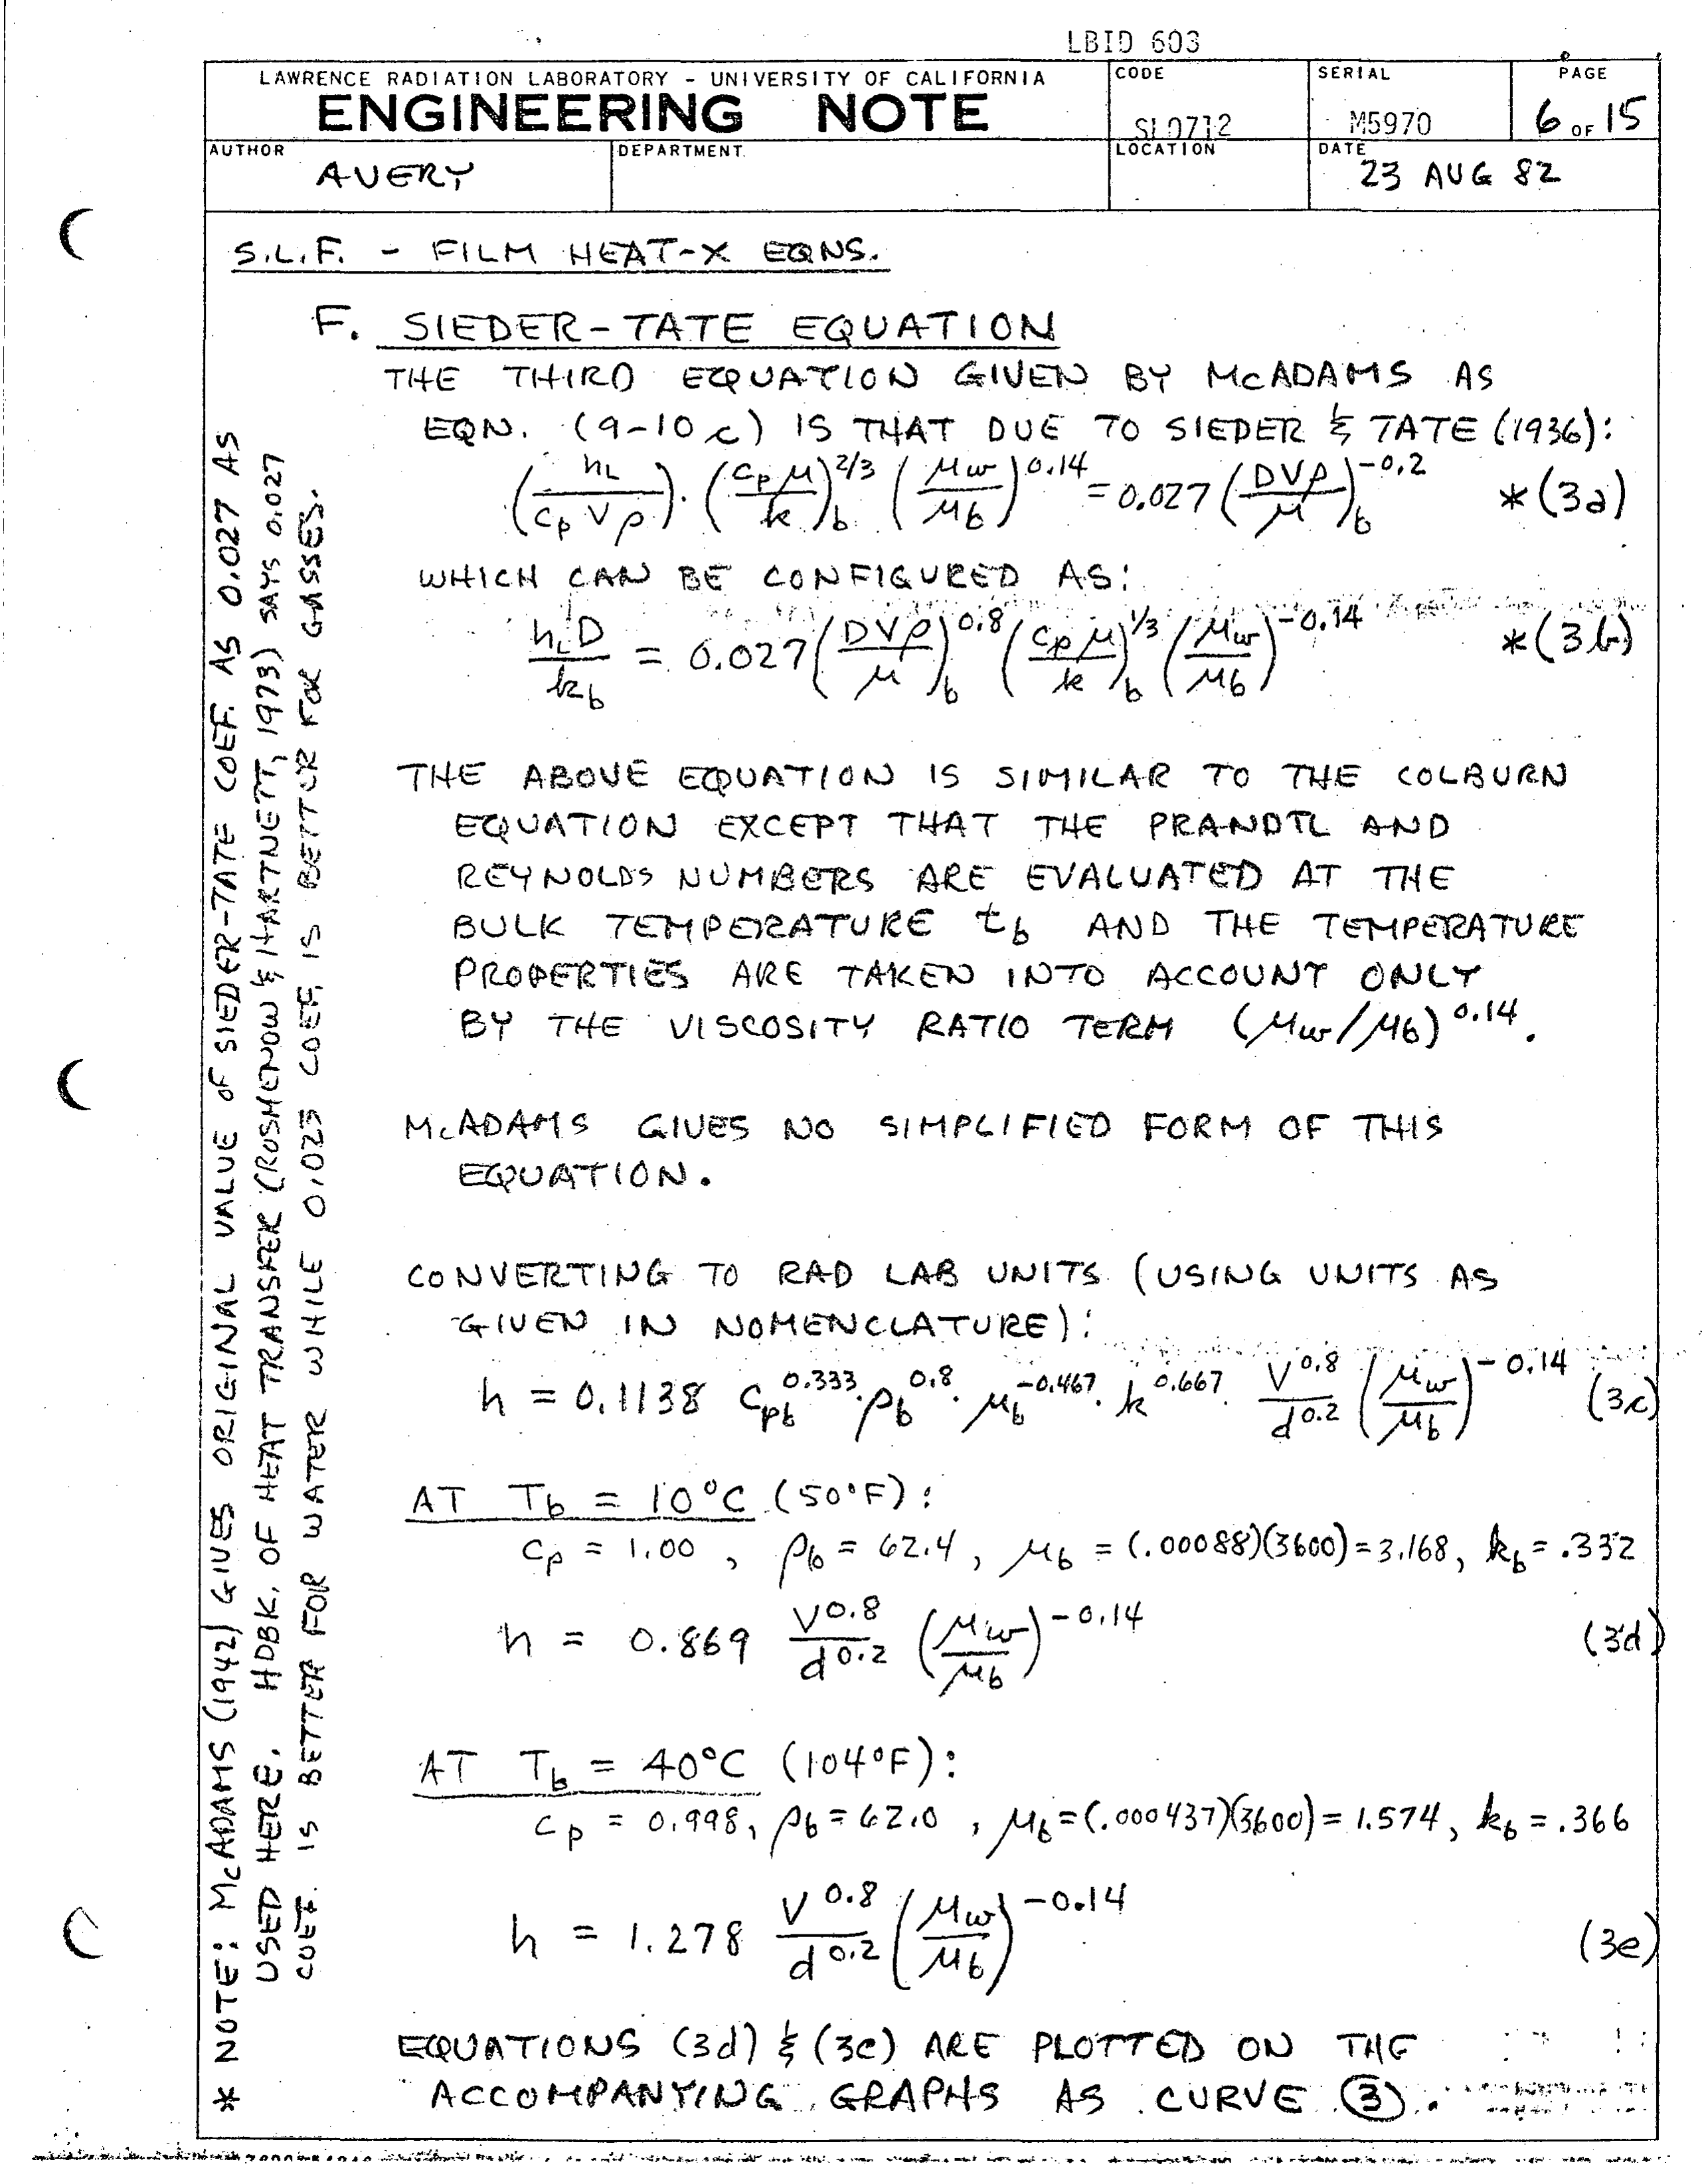 LBID 603
LAWRENCE RADIATION LABORATORY - UNIVERSITY OF CALIFORNIA
ENGINEERING NOTE
CODE
SL0712
SERIAL
M5970
PAGE
6 OF 15
AUTHOR
AVERY
DEPARTMENT
LOCATION
DATE
23 AUG 82
S.L.F. - FILM HEAT-X EQNS.
F. SIEDER-TATE EQUATION
THE THIRD EQUATION GIVEN BY McADAMS AS
EQN. (9-10c) IS THAT DUE TO SIEDER & TATE (1936):
(h_L / c_p V ρ) · (c_p μ / k)_b^2/3 (μ_w / μ_b)^0.14 = 0.027 (D V ρ / μ)_b^-0.2 *(3a)
WHICH CAN BE CONFIGURED AS:
h_L D / k_b = 0.027 (D V ρ / μ)_b^0.8 (c_p μ / k)_b^1/3 (μ_w / μ_b)^-0.14 *(3b)
THE ABOVE EQUATION IS SIMILAR TO THE COLBURN
EQUATION EXCEPT THAT THE PRANDTL AND
REYNOLDS NUMBERS ARE EVALUATED AT THE
BULK TEMPERATURE t_b AND THE TEMPERATURE
PROPERTIES ARE TAKEN INTO ACCOUNT ONLY
BY THE VISCOSITY RATIO TERM (μ_w/μ_b)^0.14.
McADAMS GIVES NO SIMPLIFIED FORM OF THIS
EQUATION.
CONVERTING TO RAD LAB UNITS (USING UNITS AS
GIVEN IN NOMENCLATURE):
h = 0.1138 c_pb^0.333 · ρ_b^0.8 · μ_b^-0.467 · k^0.667 · V^0.8 / d^0.2 (μ_w / μ_b)^-0.14 (3c)
AT T_b = 10°C (50°F):
c_p = 1.00, ρ_b = 62.4, μ_b = (.00088)(3600) = 3.168, k_b = .332
h = 0.869 V^0.8 / d^0.2 (μ_w / μ_b)^-0.14 (3d)
AT T_b = 40°C (104°F):
c_p = 0.998, ρ_b = 62.0, μ_b = (.000437)(3600) = 1.574, k_b = .366
h = 1.278 V^0.8 / d^0.2 (μ_w / μ_b)^-0.14 (3e)
EQUATIONS (3d) & (3e) ARE PLOTTED ON THE
ACCOMPANYING GRAPHS AS CURVE (3).
* NOTE: McADAMS (1942) GIVES ORIGINAL VALUE OF SIEDER-TATE COEF. AS 0.027 AS
USED HERE. HDBK. OF HEAT TRANSFER (ROSHENOW & HARTNETT, 1973) SAYS 0.027
COEF. IS BETTER FOR WATER WHILE 0.023 COEF. IS BETTER FOR GASSES.